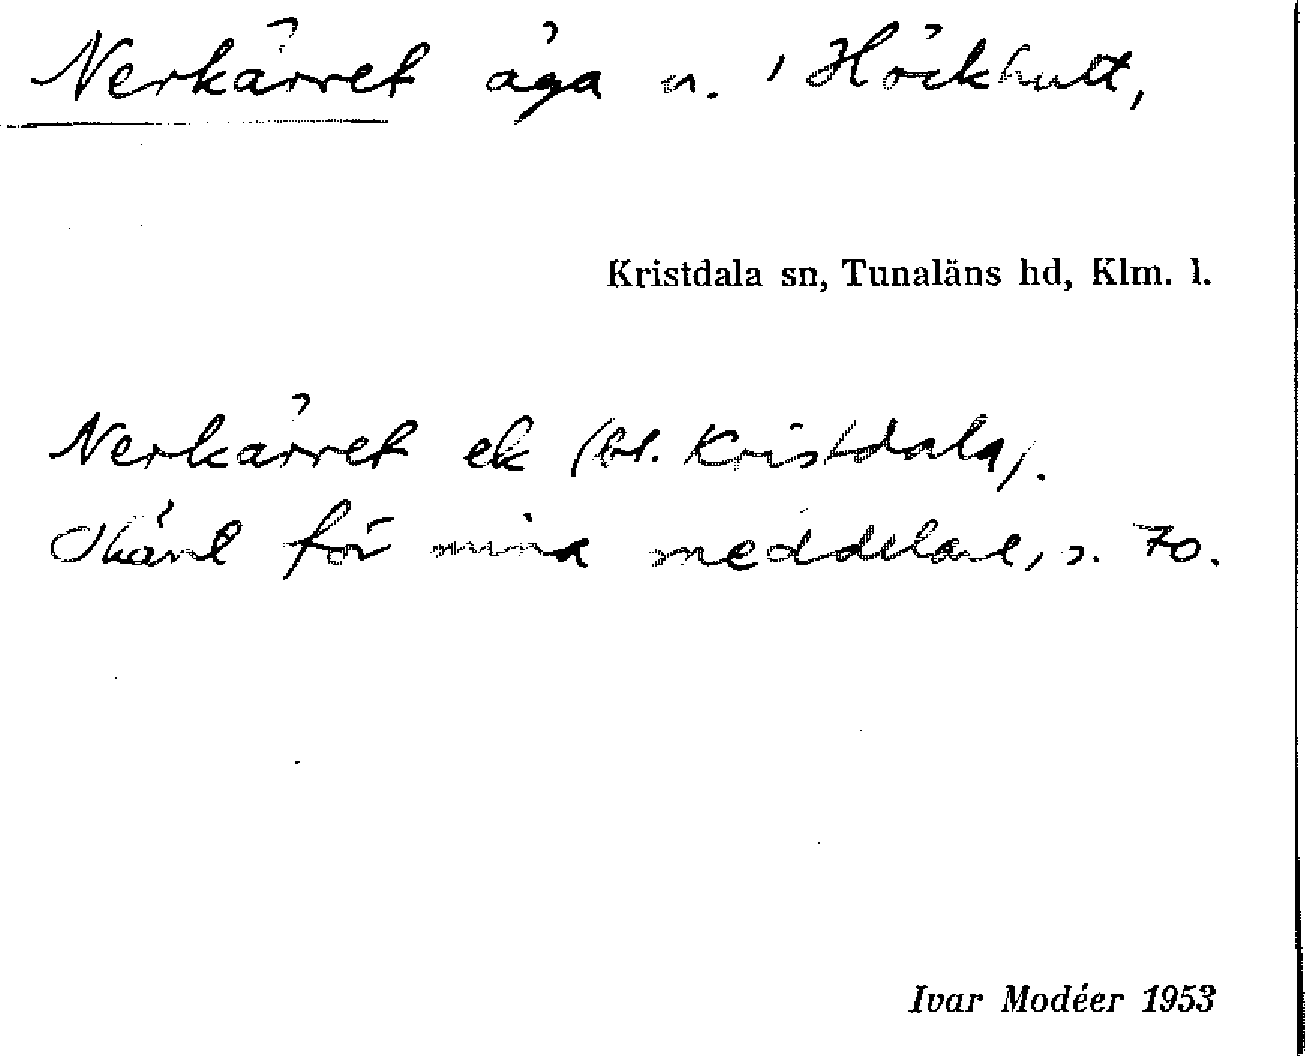 Nerkärret äga n. i Höckhult,
Kristdala sn, Tunaläns hd, Klm. l.
Nerkärret ek (bl. Kristdala).
Okänt för mina meddelare, s. 70.
Ivar Modéer 1953